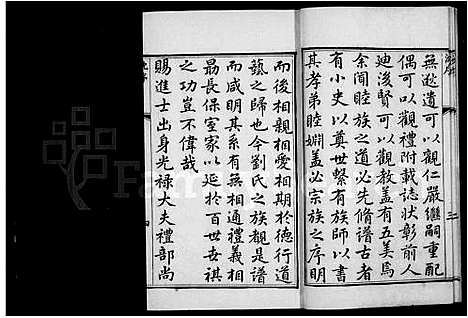 無愁遺可以觀仁嚴繼嗣重配
偶可以觀禮附載誌狀彰前人
迪後賢可以觀教蓋有五美焉
余聞睦族之道必先脩譜古者
有小史以奠世繫有族師以書
其孝弟睦婣蓋必宗族之序明
而後相親相愛相期於德行道
藝之歸也今劉氏之族覩是譜
而咸明其系有無相通禮義相
勗長保室家以延於百世丧祺
之功豈不偉哉
賜進士出身光禄大夫禮部尚
三